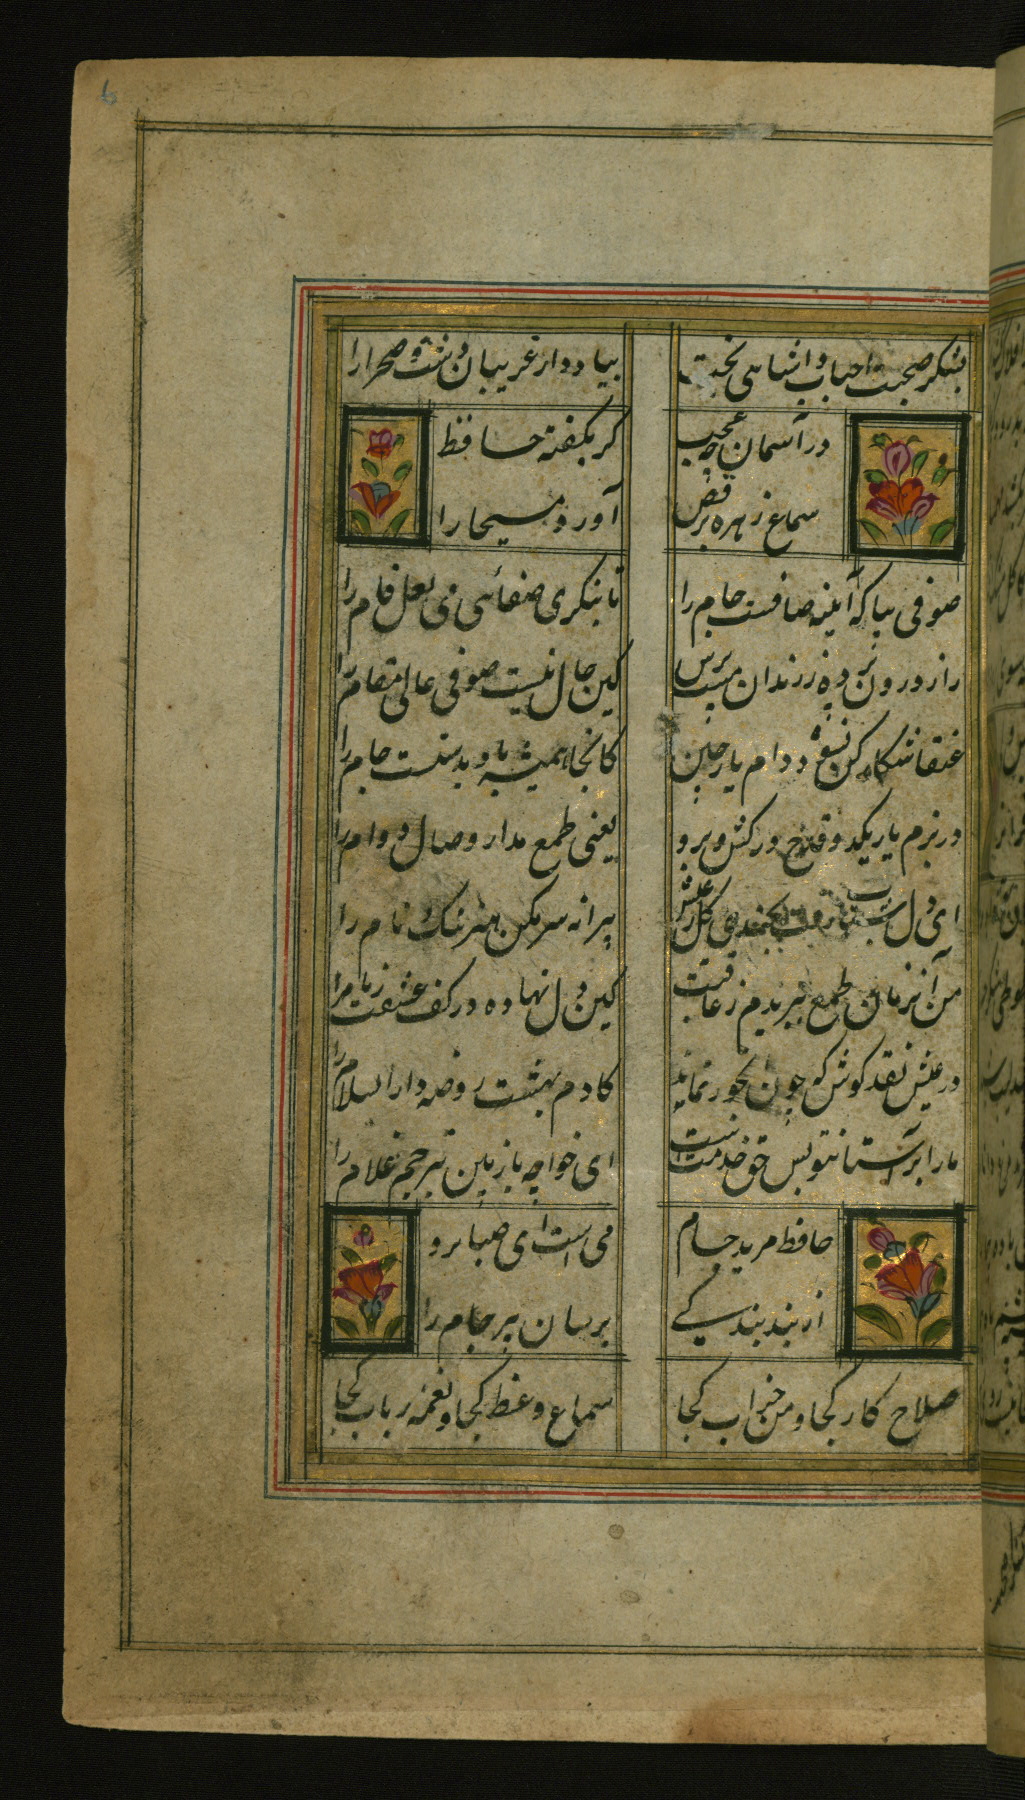 بشکر صحبت احباب و آشنایی بخت
بیاد دار غریبان دشت و صحرا را
در آسمان چه عجب
گر بگفته حافظ
سماع زهره برقص
آورد مسیحا را
صوفی بیا که آینه صافست جام را
تا بنگری صفائی می لعل فام را
راز درون پرده ز رندان مست پرس
کین حال نیست صوفی عالی مقام را
عنقا شکار کس نشود دام باز چین
کانجا همیشه باد بدستست دام را
در بزم یار یکدو قدح درکش و برو
یعنی طمع مدار وصال دوام را
ای دل شباب رفت نچیدی گلی ز عیش
پیرانه سر بکن هنر ننگ نام را
من آنزمان طمع ببریدم ز عافیت
کین دل نهاد در کف عشقت زمام را
در عیش نقد کوش که چون آبخور نماند
کادم بهشت روضه دارالسلام را
ما را بر آستان تو بس حق خدمت است
ای خواجه باز بین بترحم غلام را
حافظ مرید جام
می است ای صبا برو
از بنده بندگی
برسان پیر جام را
صلاح کار کجا و من خراب کجا
سماع وعظ کجا و نغمه رباب کجا